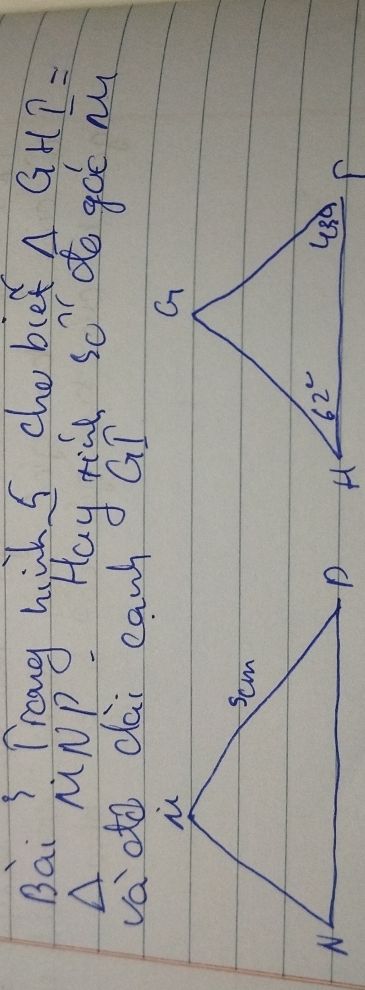 Bài 3 Trong hình 5 cho biết Δ GHI =
Δ MNP. Hãy tính số đo góc M
và độ dài cạnh GI
M
5cm
N
P
G
62°
43°
H
I